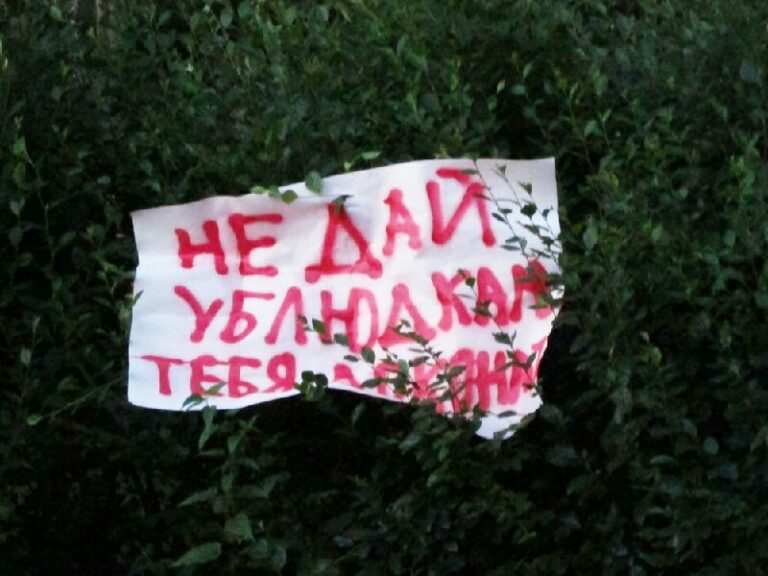 НЕ ДАЙ
УБЛЮДКАМ
ТЕБЯ